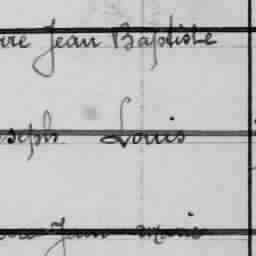 rre Jean Baptiste
oseph Louis
Jean Marie